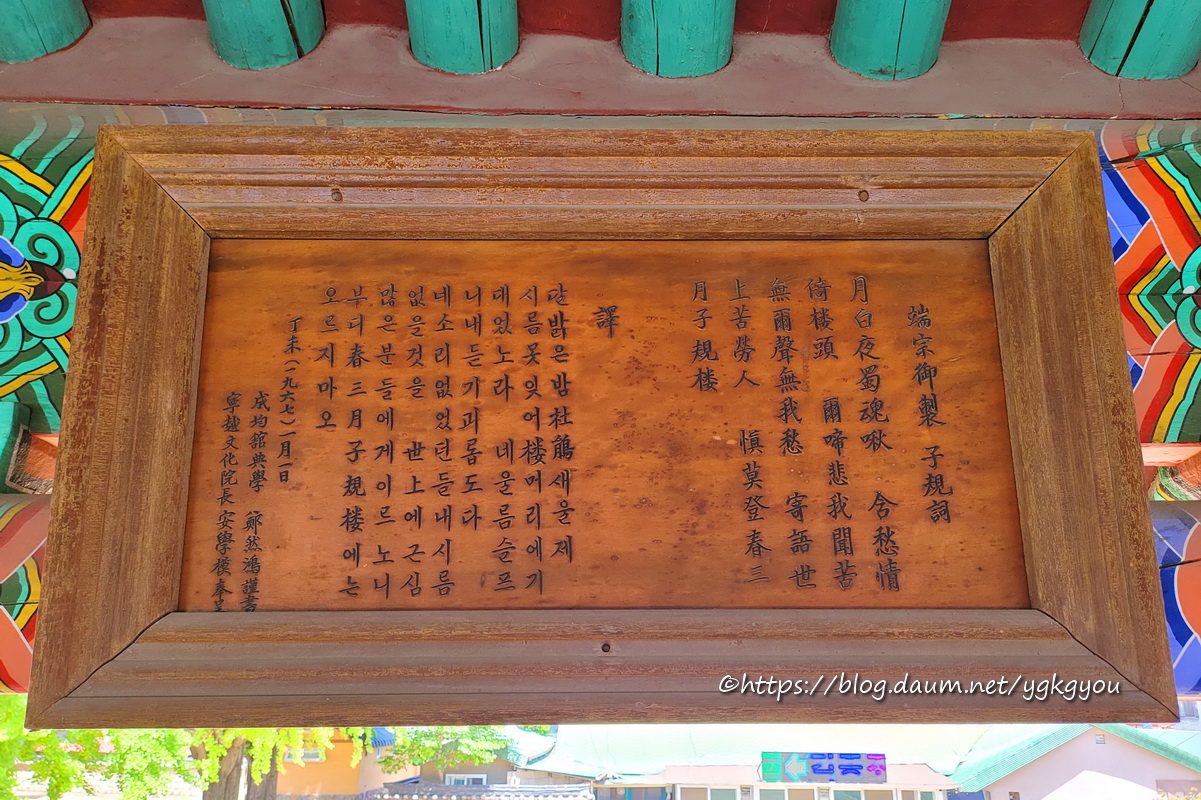 端宗御製 子規詞
月白夜蜀魂啾 含愁情
倚楼頭 爾啼悲我聞苦
無爾聲無我愁 寄語世
上苦勞人 愼莫登春三
月子規楼
譯
달밝은밤杜鵑새울제
시름못잊어楼머리에기
대었노라 네울름슬프
니내듣기괴롭도다
네소리없었던들내시름
없을것을 世上에근심
많은분들에게이르노니
부디春三月子規楼에는
오르지마오
丁未(一九六七)一月一日
成均館典學 鄭然鴻謹書
寧越文化院長 安學模奉呈
©https://blog.daum.net/ygkgyou